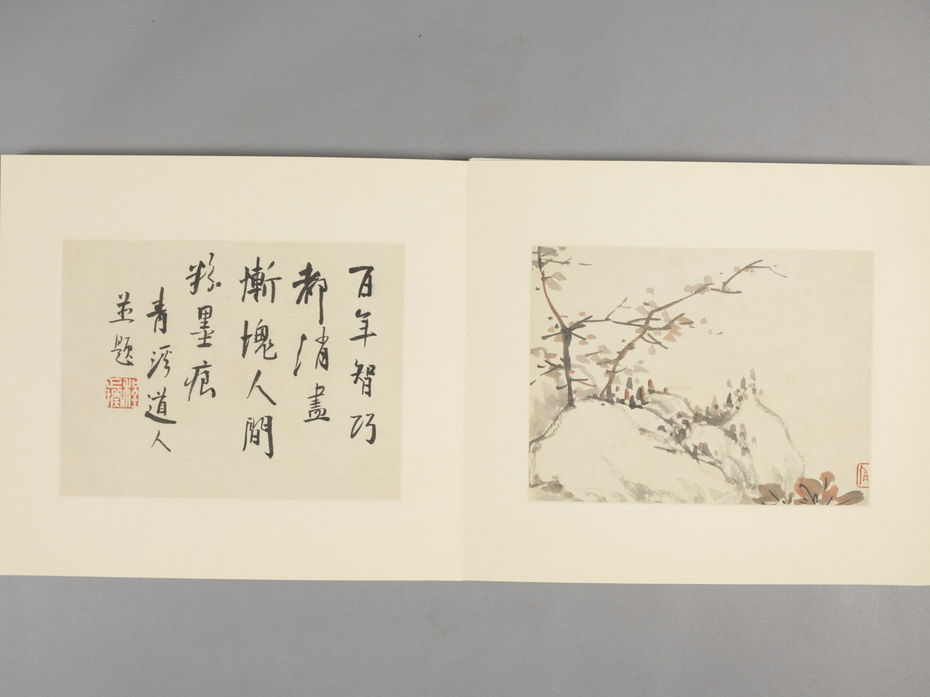 百年智巧
都消盡
慚愧人間
粉墨痕
青溪道人
並題